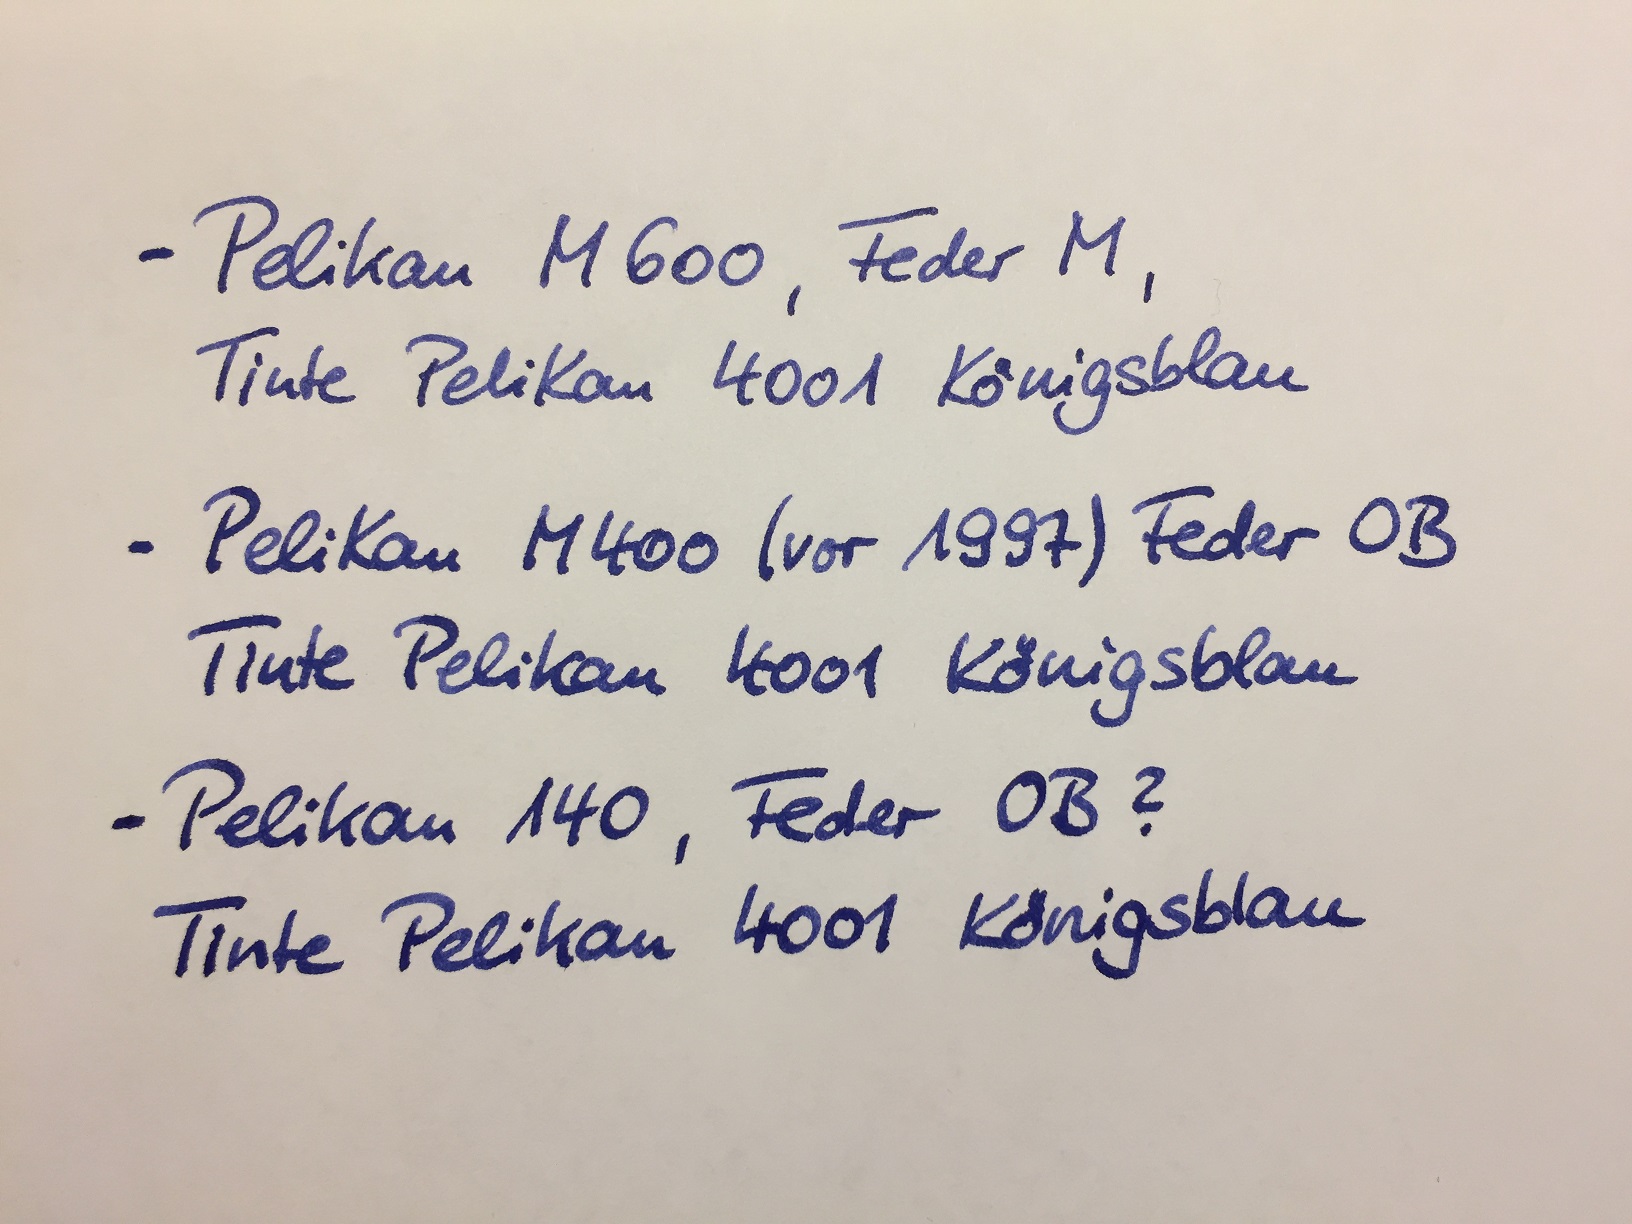 - Pelikan M600, Feder M,
Tinte Pelikan 4001 Königsblau
- Pelikan M400 (vor 1997) Feder OB
Tinte Pelikan 4001 Königsblau
- Pelikan 140, Feder OB?
Tinte Pelikan 4001 Königsblau